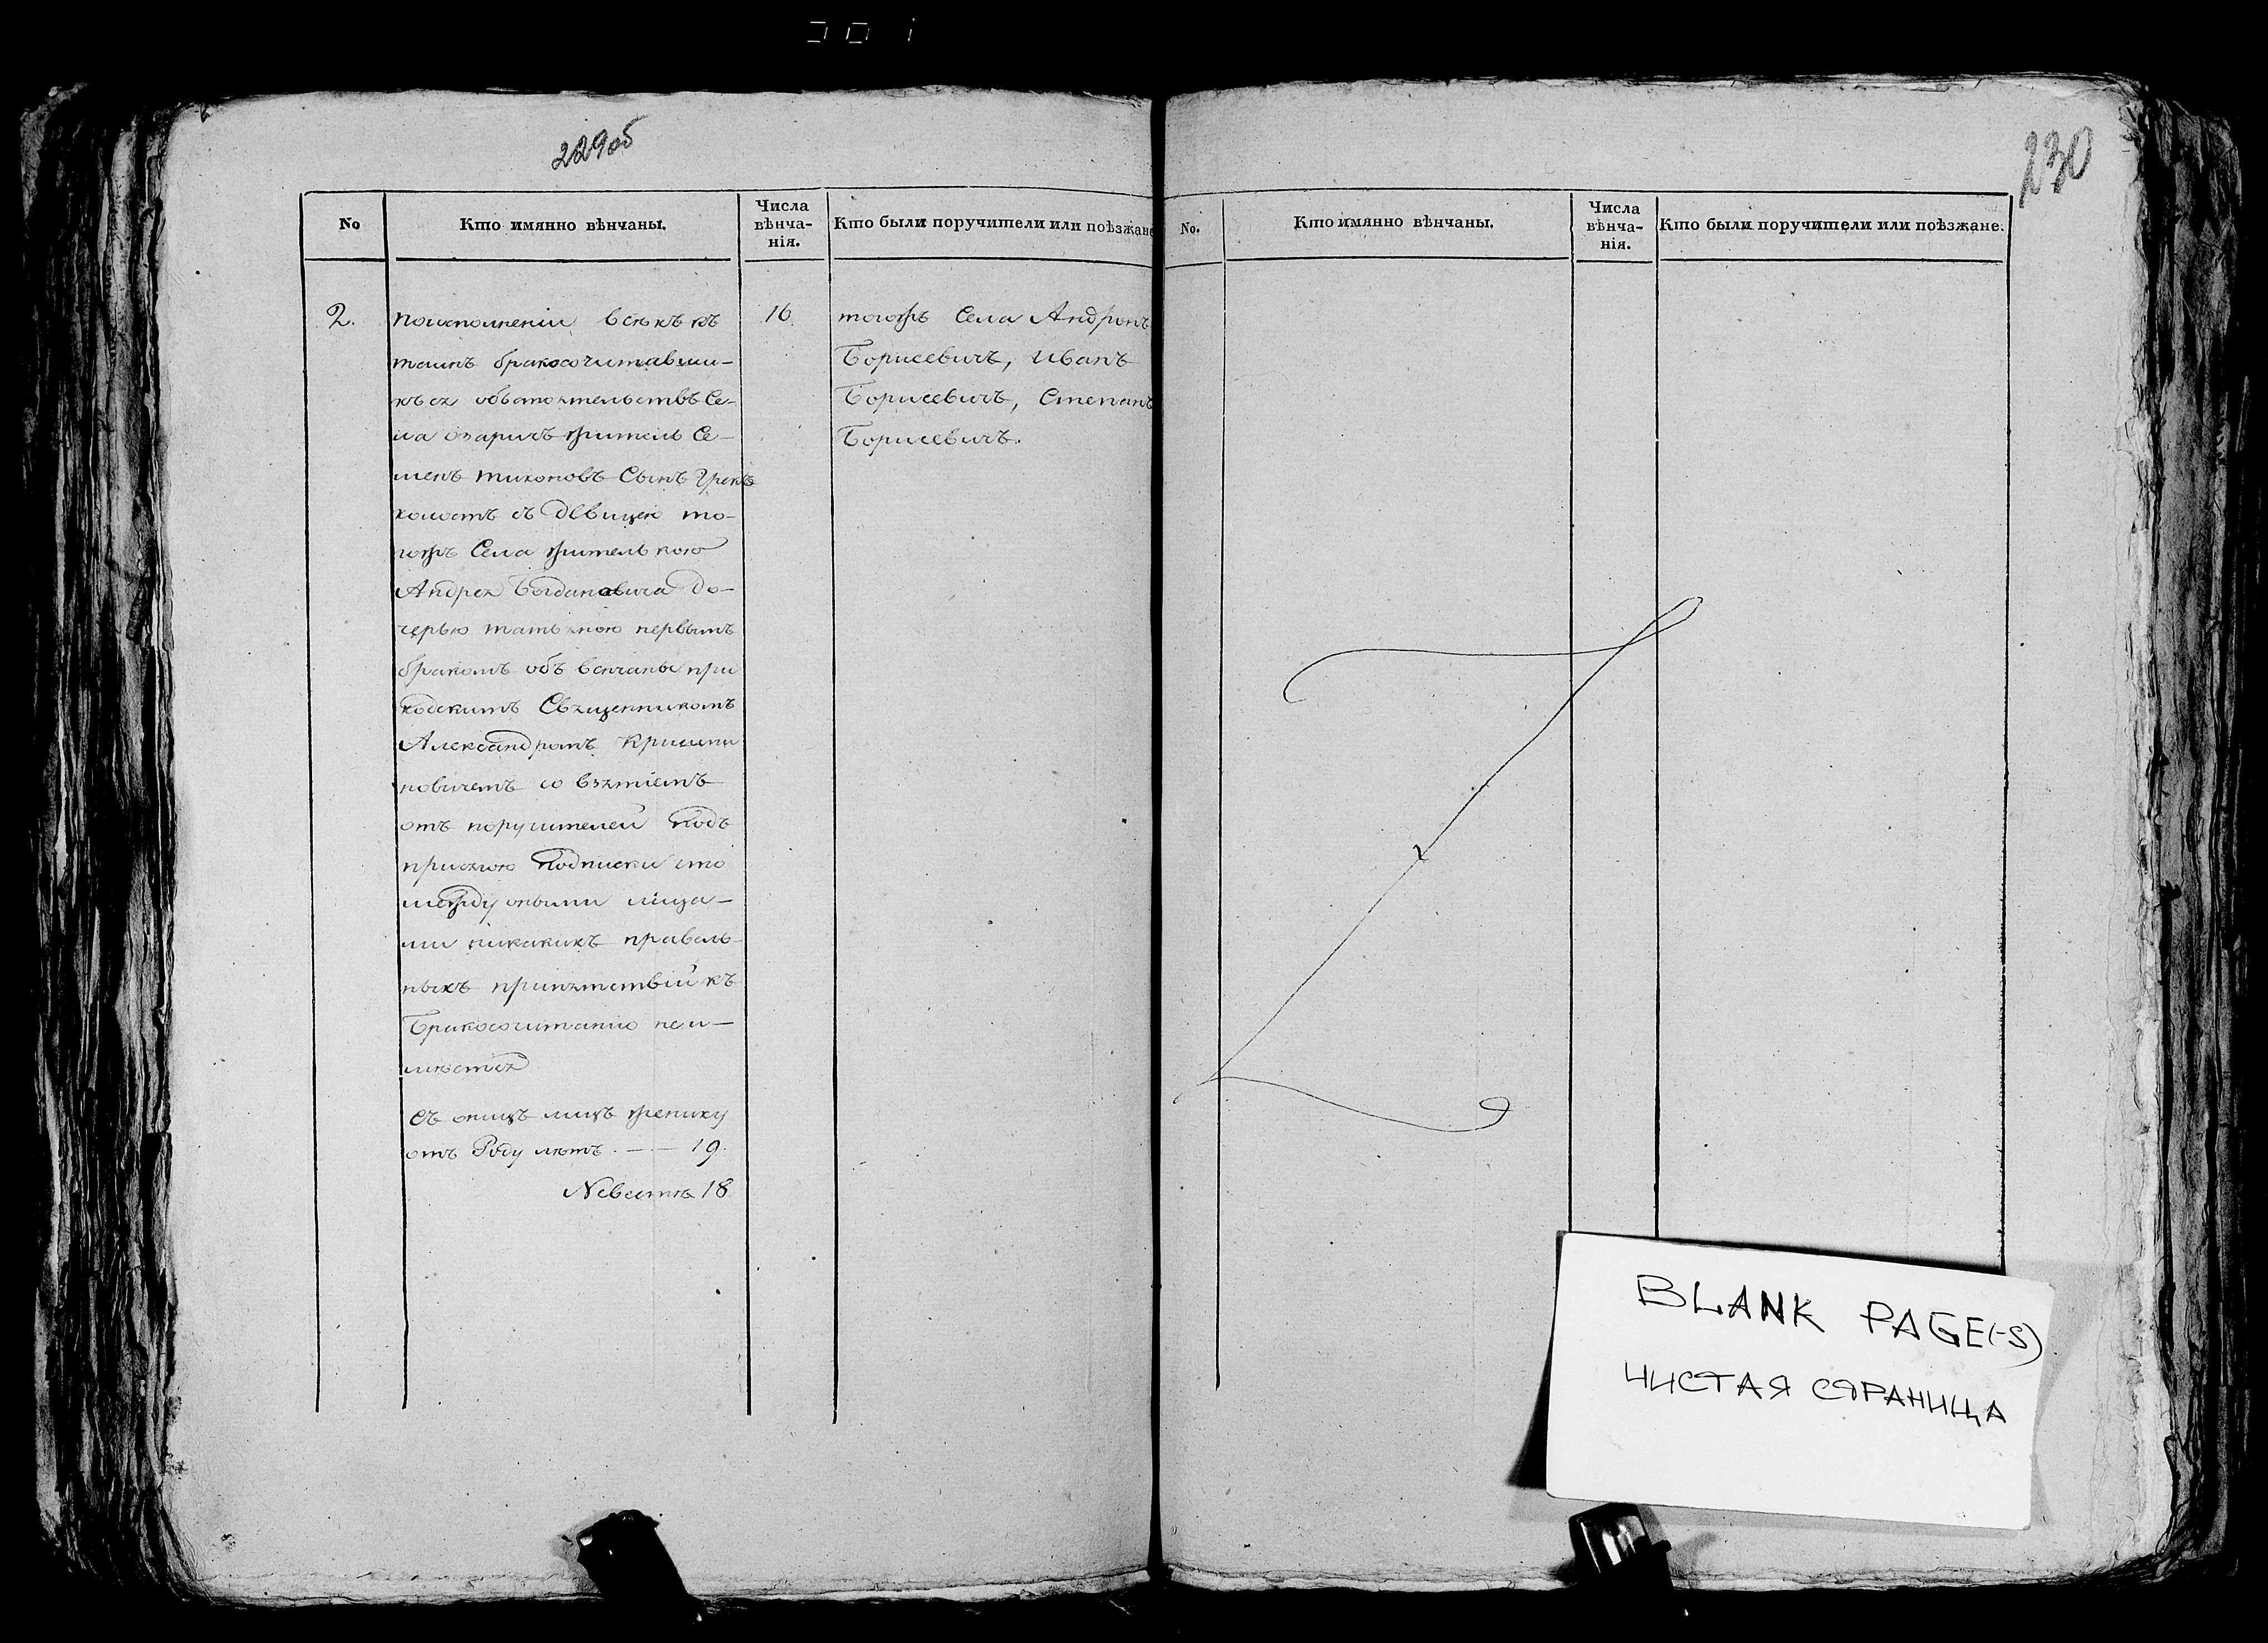 229об
No
Кто имянно вѣнчаны.
Числа
вѣнча-
нія.
Кто были поручители или поѣзжане
2.
поисполненіи всѣхъ къ
таинъ бракосочитавши-
хъся обстоятельствъ Се-
ла Озаричъ житель Се-
менъ Тихоновъ Сынъ
холостъ съ Дѣвицею то-
гожъ Села жителькою
Андрея Богдановича До-
черью Татьяною первымъ
бракомъ объ венчаны при
ходскимъ Священникомъ
Александромъ
новичемъ со взятіемъ
отъ поручителей Подъ
присягою Подписки что
между оными лица-
ми никакихъ праваль-
ныхъ припятствій къ
Бракосочитанію неи-
мѣется
Съ оныхъ лицъ жениху
отъ Роду лѣтъ. — — 19.
Невестѣ 18.
16.
тогожъ Села Андронъ
Борисевичъ, Иванъ
Борисевичъ, Степанъ
Борисевичъ.
230
No.
Кто имянно вѣнчаны.
Числа
вѣнча-
нія.
Кто были поручители или поѣзжане.
BLANK PAGE(-S)
ЧИСТАЯ СТРАНИЦА